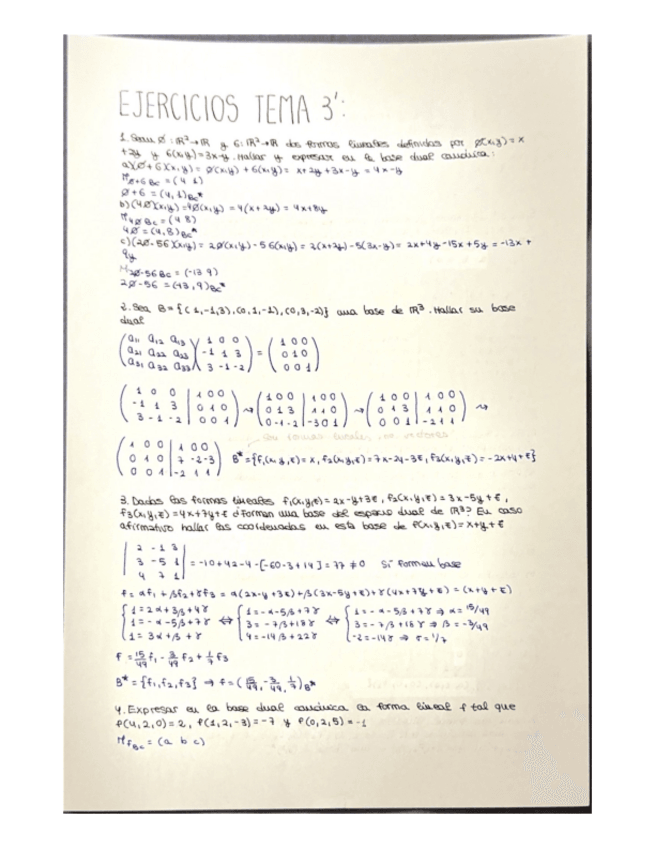 EJERCICIOS TEMA 3':
1. Sean Ø: ℝ²→ℝ y 6: ℝ²→ℝ dos formas lineales definidas por Ø(x,y) = x
+2y y 6(x,y) = 3x-y. Hallar y expresar en la base dual canónica:
a) (Ø+6)(x,y) = Ø(x,y) + 6(x,y) = x+2y+3x-y = 4x-y
M Ø+6 Bc = (4 1)
Ø+6 = (4,1)Bc*
b) (4Ø)(x,y) = 4Ø(x,y) = 4(x+2y) = 4x+8y
M 4Ø Bc = (4 8)
4Ø = (4,8)Bc*
c) (2Ø-56)(x,y) = 2Ø(x,y) - 56(x,y) = 2(x+2y) - 5(3x-y) = 2x+4y-15x+5y = -13x+
9y
M 2Ø-56 Bc = (-13 9)
2Ø-56 = (-13,9)Bc*
2. Sea B = {(1,-1,3), (0,1,-1), (0,3,-2)} una base de ℝ³. Hallar su base
dual
(a11 a12 a13 / a21 a22 a23 / a31 a32 a33) (1 0 0 / -1 1 3 / 3 -1 -2) = (1 0 0 / 0 1 0 / 0 0 1)
(1 0 0 | 1 0 0 / -1 1 3 | 0 1 0 / 3 -1 -2 | 0 0 1) ⇝ (1 0 0 | 1 0 0 / 0 1 3 | 1 1 0 / 0 -1 -2 | -3 0 1) ⇝ (1 0 0 | 1 0 0 / 0 1 3 | 1 1 0 / 0 0 1 | -2 1 1) ⇝
(1 0 0 | 1 0 0 / 0 1 0 | 7 -2 -3 / 0 0 1 | -2 1 1) B* = {f1(x,y,z) = x, f2(x,y,z) = 7x-2y-3z, f3(x,y,z) = -2x+y+z}
3. Dadas las formas lineales f1(x,y,z) = 2x-y+3z, f2(x,y,z) = 3x-5y+z,
f3(x,y,z) = 4x+7y+z ¿forman una base del espacio dual de ℝ³? En caso
afirmativo hallar las coordenadas en esta base de f(x,y,z) = x+y+z
|2 -1 3 / 3 -5 1 / 4 7 1| = -10+42-4-[-60-3+14] = 77 ≠ 0 Sí forman base
f = αf1 + βf2 + γf3 = α(2x-y+3z) + β(3x-5y+z) + γ(4x+7y+z) = (x+y+z)
{1 = 2α+3β+4γ / 1 = -α-5β+7γ / 1 = 3α+β+γ ⇔ {1 = -α-5β+7γ / 3 = -7β+18γ / 4 = -14β+22γ ⇔ {1 = -α-5β+7γ ⇒ α = 15/49 / 3 = -7β+18γ ⇒ β = -3/49 / -2 = -14γ ⇒ γ = 1/7
f = 15/49 f1 - 3/49 f2 + 1/7 f3
B* = {f1, f2, f3} ⇒ f = (15/49, -3/49, 1/7)B*
4. Expresar en la base dual canónica la forma lineal f tal que
f(4,2,0) = 2, f(1,2,-3) = -7 y f(0,2,5) = -1
M f Bc = (a b c)